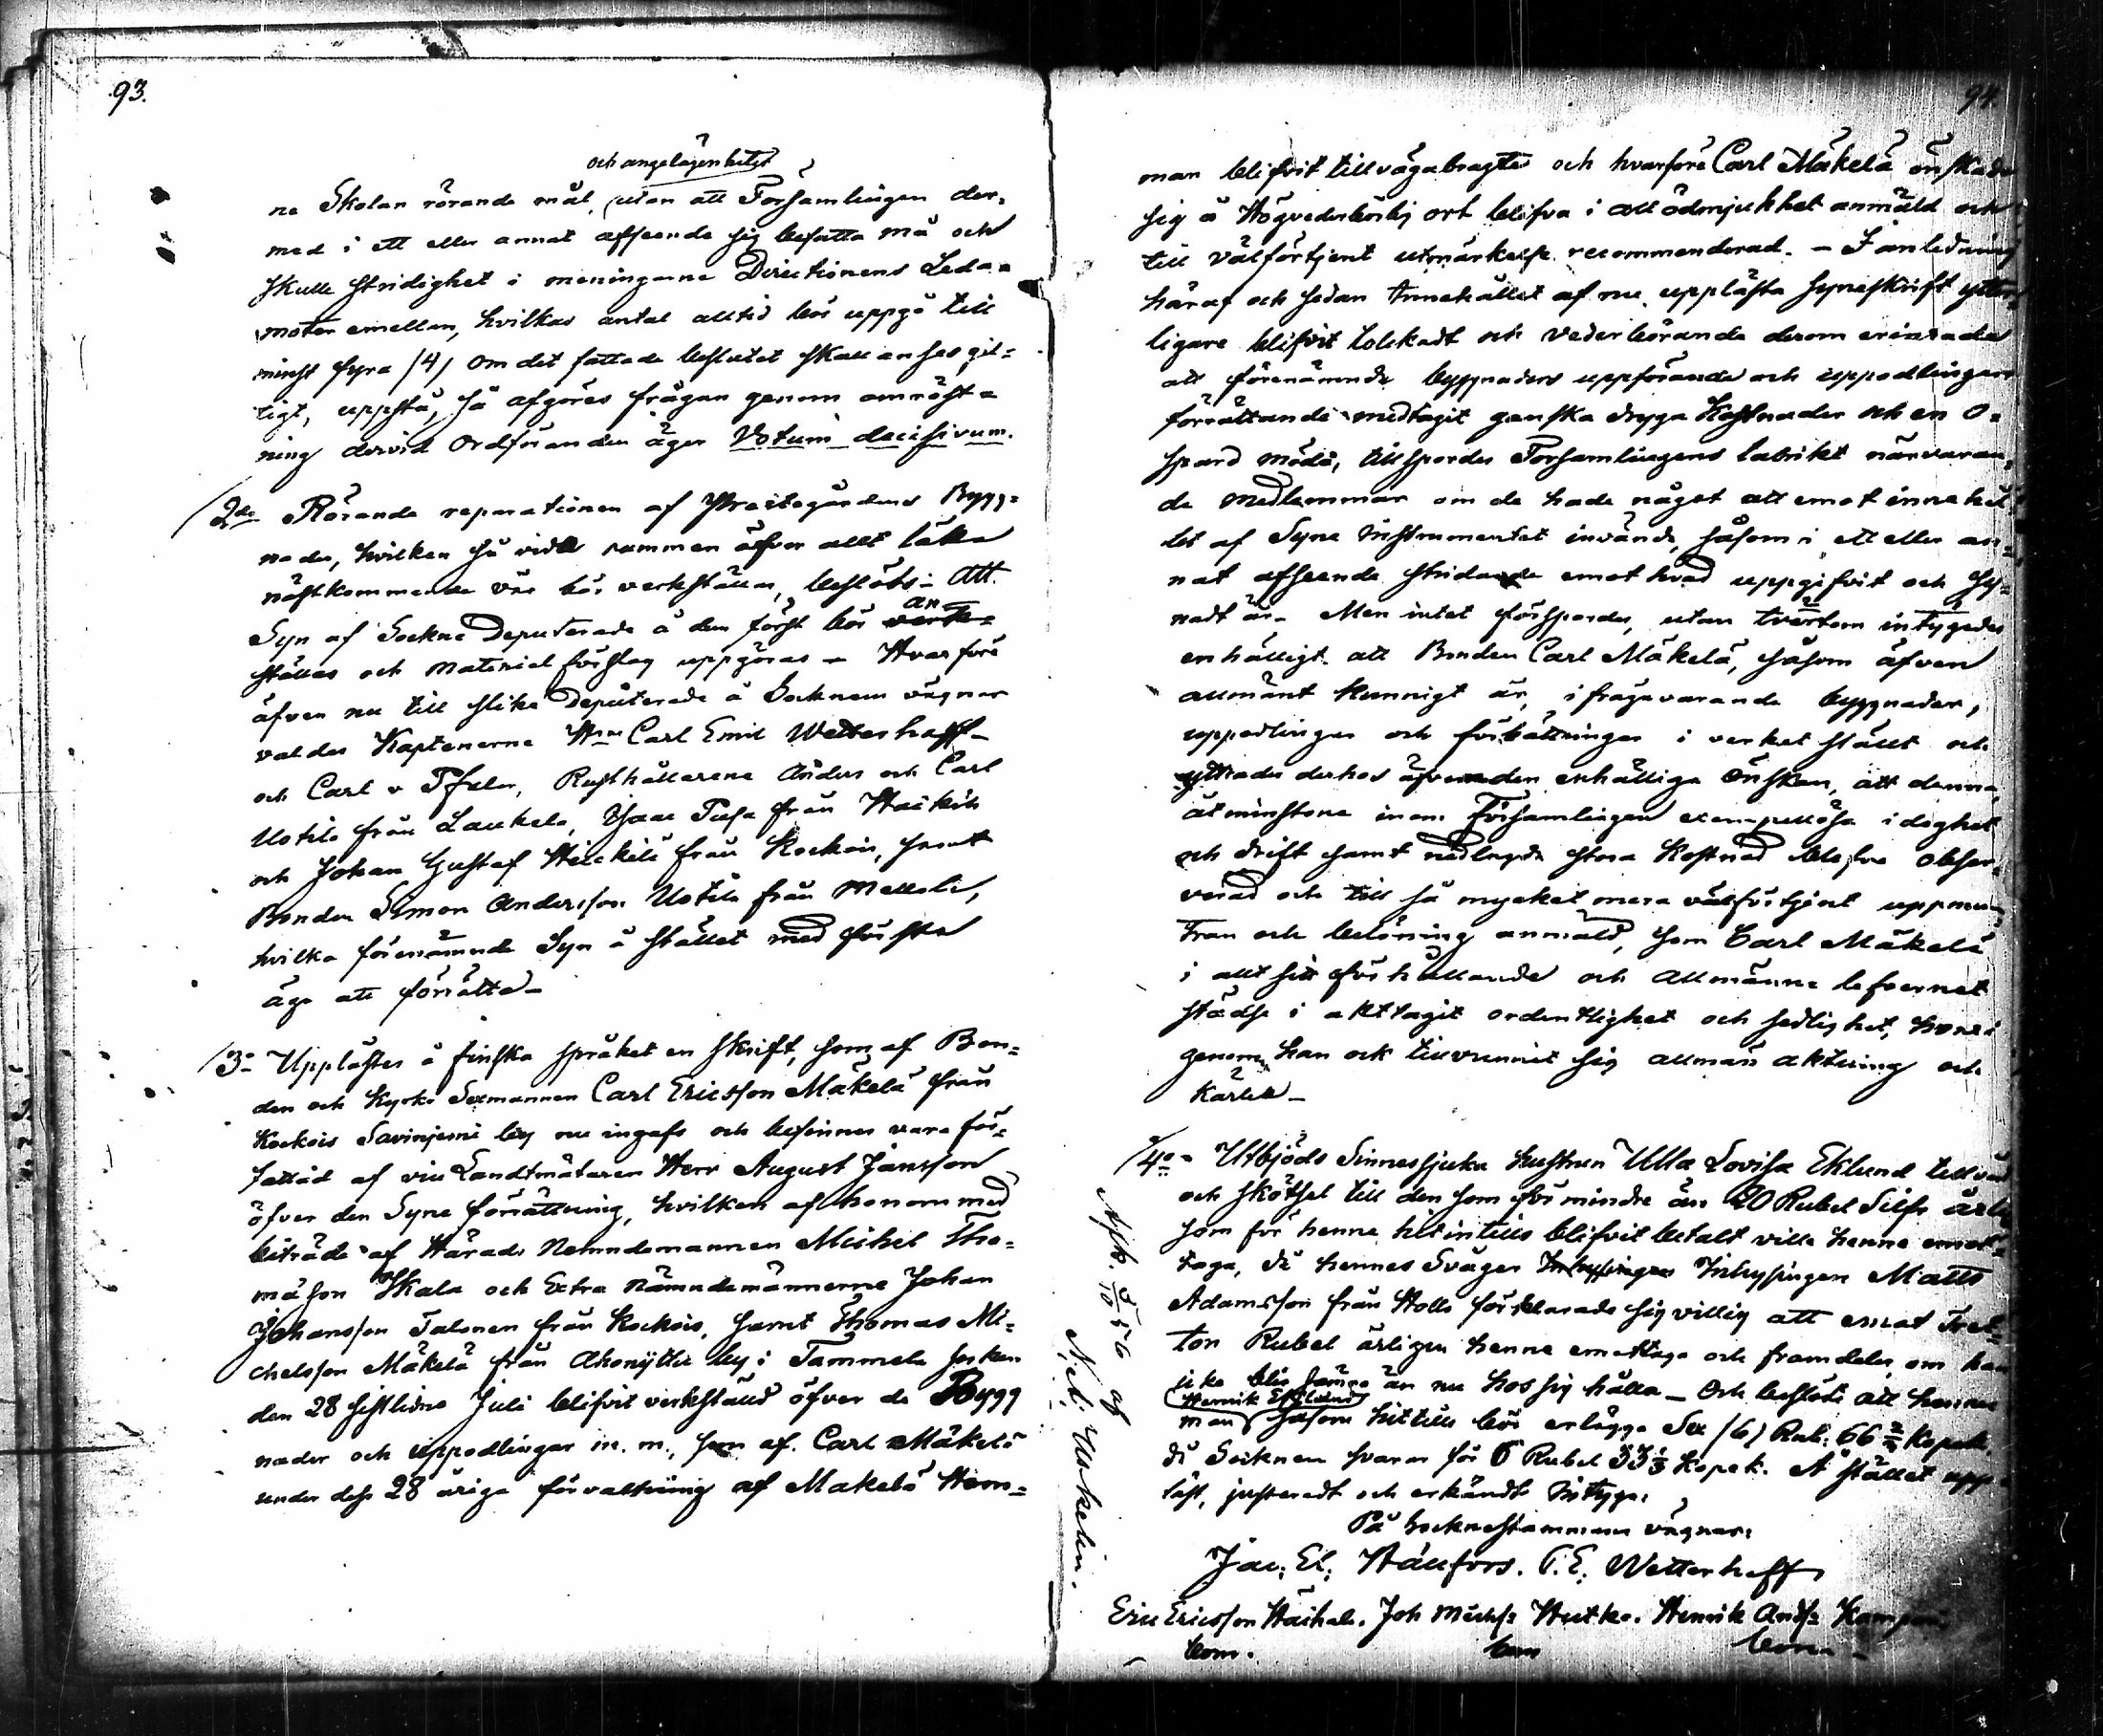 93.
och angelägenheter
ne Skolan rörande mål, utan att Församlingen der-
med i ett eller annat afseende sig befatta må och
skulle stridighet i meningarne Directionens Leda-
moter emellan, hvilkas antal alltid bör uppgå till
minst fyra (4) om det fattade beslutet skall anses gil-
tigt, uppstå, så afgöres frågan genom omröst-
ning dervid Ordföranden äger Votum decisivum.
2do Rörande reparationen af Prestegårdens Bygg-
nader, hvilken så vida sommen öfver allt
nästkommande vår bör verkställas, beslöts: Att
Syn af Sockne Deputerade å dem först bör an-
ställas och material förslag uppgöras - Hvarföre
äfven nu till slike Deputerade å Socknens vägnar
valdes Kaptenerne Hrr Carl Emil Wetterhoff
och Carl v Pfaler, Rusthållarena Anders och Carl
Uotila från Laukela, Isaac Tusa från
och Johan Gustaf Heickilä från Kockois, samt
Bonden Simon Andersson Uotila från
hvilka förenämnde Syn å stället med första
äga att förrätta -
3o Upplästes å finska språket en skrift, som af Bon-
den och Kyrko Sexmannen Carl Ericsson Mäkelä från
Kockois Savinjemi by nu ingafs och befinnes vara för-
fattad af vice Landtmätaren Herr August Jansson
öfver den Syne förrättning, hvilken af honom med
biträde af Härads Nämndemannen Michel Tho-
masson Skala och Extra nämndemännerne Johan
Johansson Talonen från Kockois, samt Thomas Mi-
chelsson Mäkelä från Ahonijttu by i Tammela Socken
den 28 sistlidne Juli blifvit verkstäld öfver de Bygg
nader och uppodlingar m. m., som af Carl Mäkelä
under dess 28 åriga förvaltning af Mäkelä Hem-
94.
man blifvit tillvägabragte och hvarföre Carl Mäkelä önskade
sig å Högvederbörlig ort blifva i all ödmjukhet anmäld och
till välförtjent utmärkelse recommenderad. - I anledning
häraf och sedan Innehållet af nu upplästa syneskrift ytter-
ligare blifvit tolckadt och vederbörande derom erinrade
att förenämnde byggnaders uppförande och uppodlingars
förrättande medtagit ganska dryga Kostnader och en O-
spard möda, tillspordes Församlingens talrikt närvaran-
de medlemmar om de hade något att emot innehål-
let af Syne Instrumentet invända, såsom i ett eller an-
nat afseende stridande emot hvad uppgifvit och
nadt är. Men intet försspordes, utan tvärtom intygades
enhälligt att Bonden Carl Mäkelä, såsom äfven
allmänt kunnigt är, ifrågavarande byggnader,
uppodlingar och förbättringar i verket ställt och
yttrades derhos äfven den enhälliga önskan, att denna,
åtminstone inom Församlingen exempellösa idoghet
och drift samt nedlagda stora kostnad blefve obser-
verad och till så mycket mera välförtjent uppmun-
tran och belöning anmäld, som Carl Mäkelä
i allt sitt förhållande och allmänna lefvernet
städse i akttagit ordentlighet och sedlighet, hvari-
genom han ock tillvunnit sig allmän aktning och
kärlek -
4o - Utbjöds Sinnessjuka hustrun Ulla Lovisa Eklund till vård
och skötsel till den som för mindre än 20 Rubel Silfr årl.
som för henne hitintills blifvit betalt ville henne emot-
taga, då hennes Svåger Inhysingen Matts
Adamsson från Holls förklarade sig villig att emot Tret-
ton Rubel årligen henne emottaga och framdeles, om han
icke blir sämre än nu hos sig hålla - Och beslöts att hennes
Henrik Eklund
man såsom hittills bör erlägga Sex (6) Rub: 66 2/3 Kopek.
då Socknen svarar för 6 Rubel 33 1/3 Kopek. A stället upp-
läst, justeradt och erkändt Intygar
På Socknestämmans vägnar:
Jac: El: Hällfors. C. E. Wetterhoff
Eric Ericsson Haihala. Joh Michs: Hutka. Henrik Ands:
bom. bom bom
Apb. 5/10 50 af
Nel: